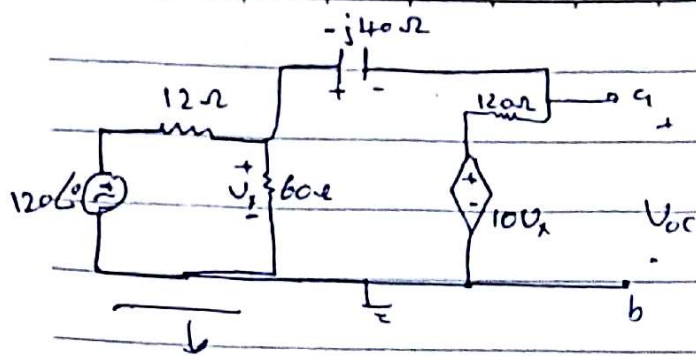 -j40Ω
+ -
12Ω
120Ω
a
+
+
120∠0°
Vx
60Ω
-
+
-
10Vx
Voc
-
b